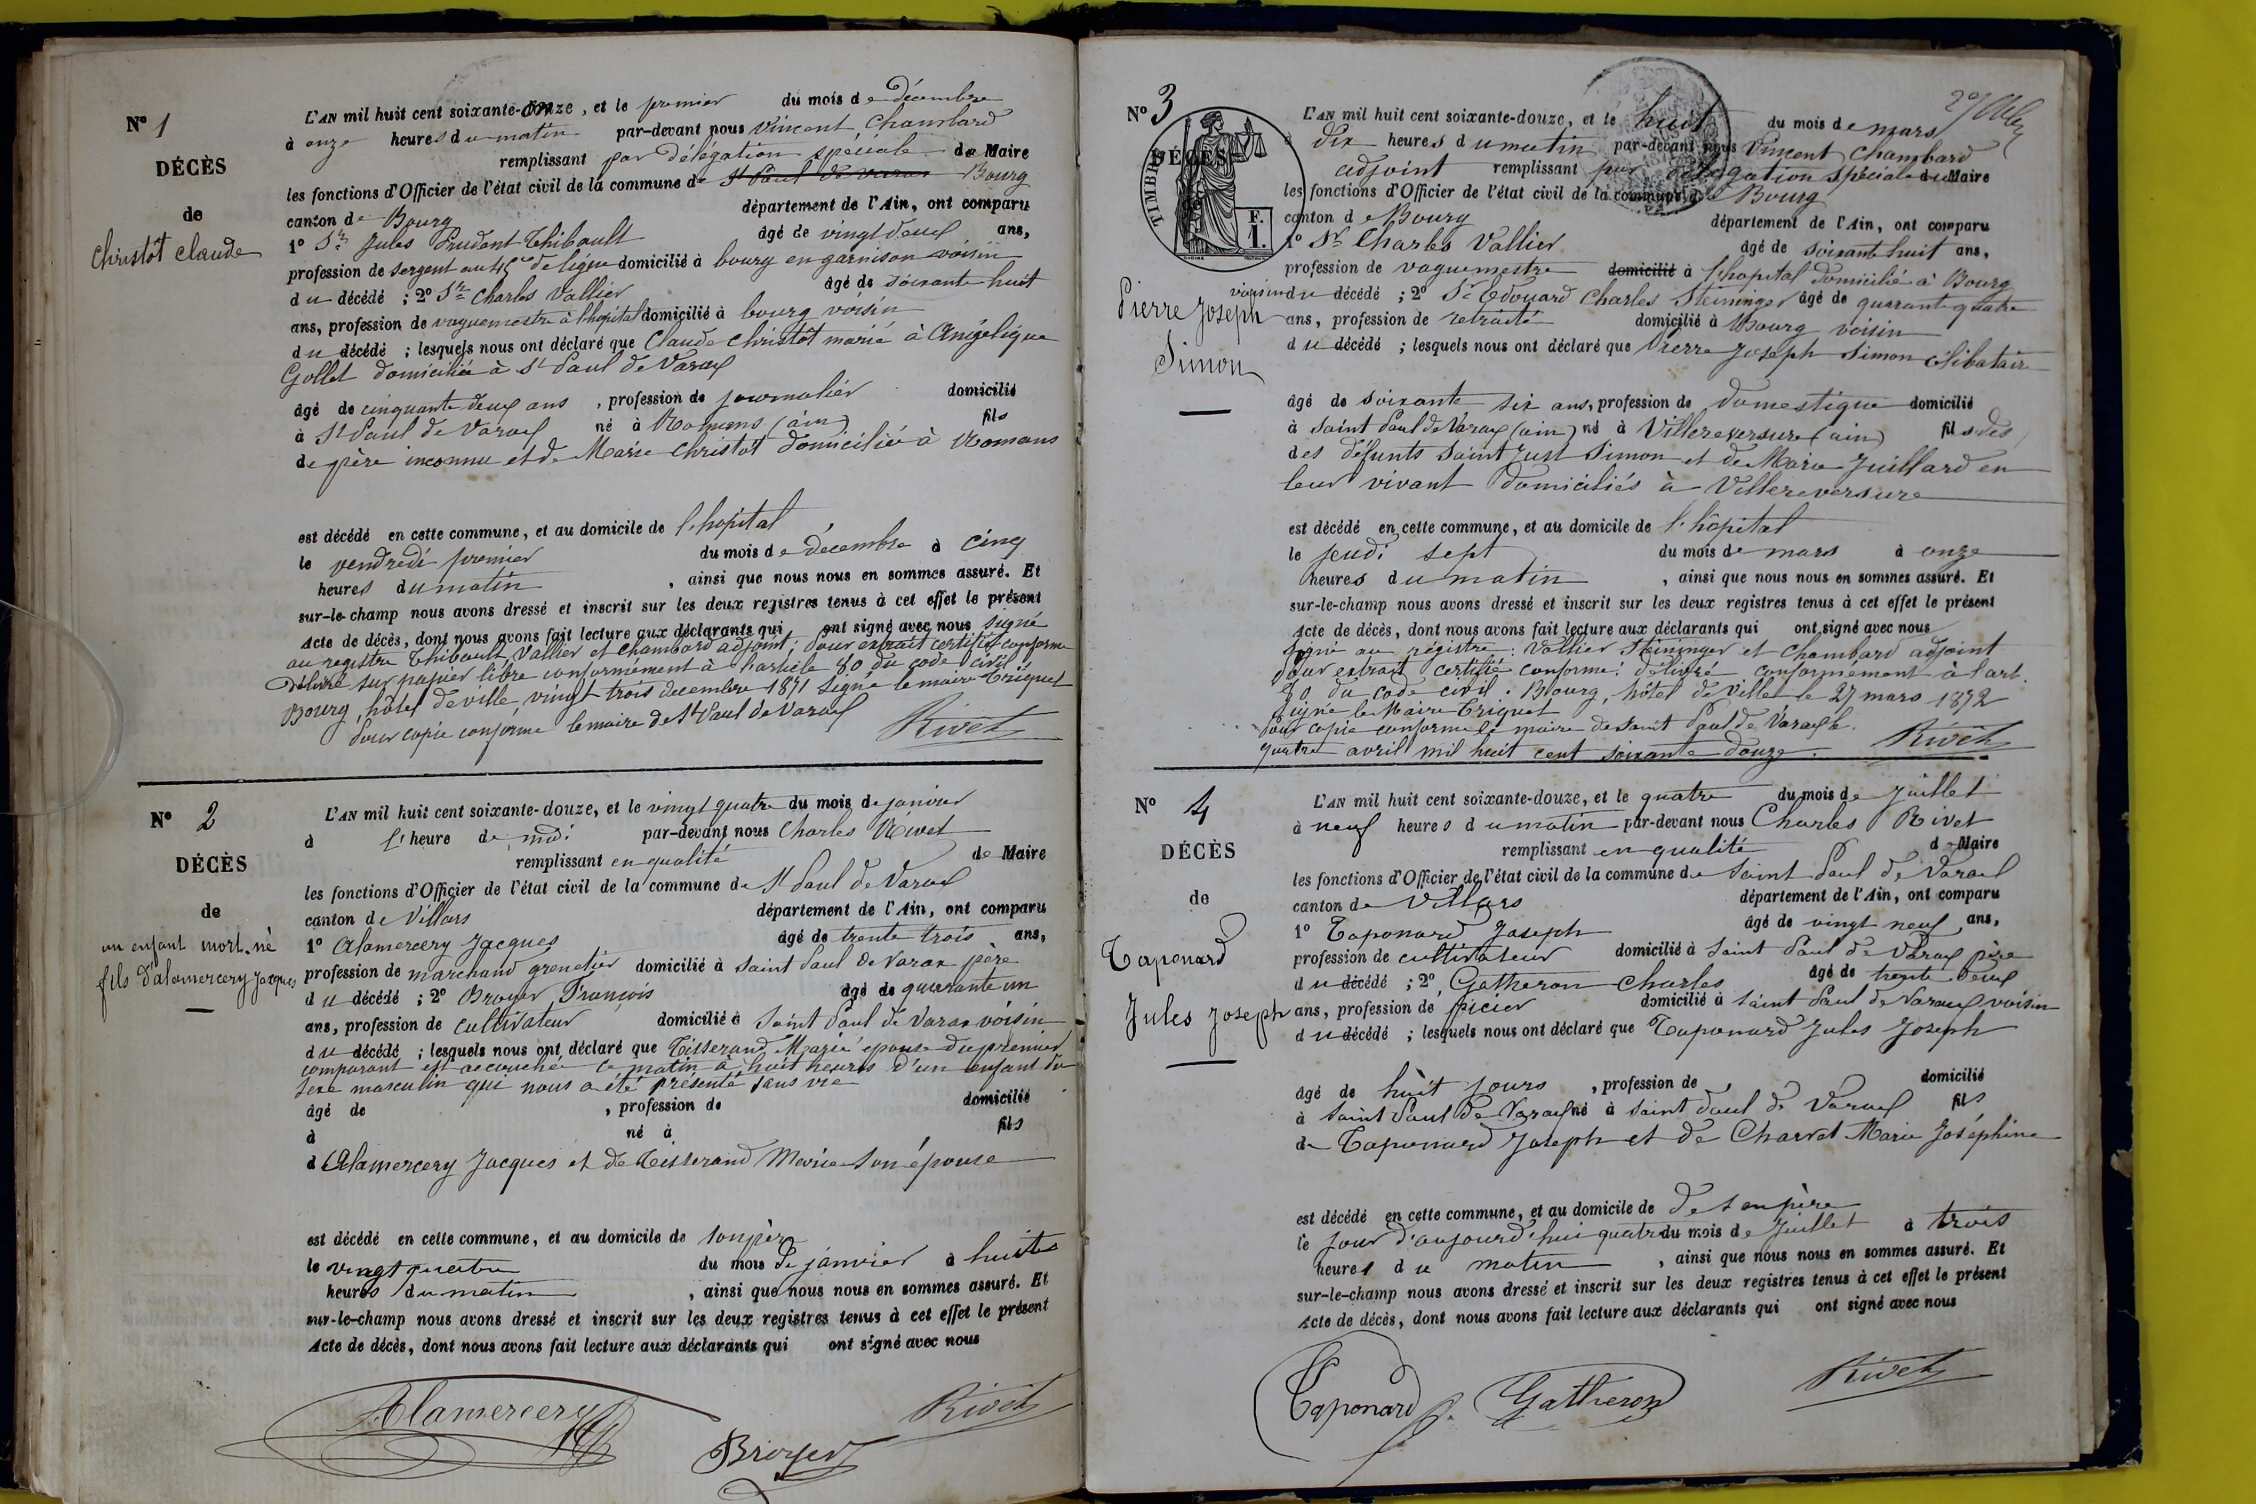 N° 1
DÉCÈS
de
Christôt Claude
L'AN mil huit cent soixante-onze, et le premier du mois de décembre
à onze heures du matin par-devant nous Vincent Chambard
remplissant par délégation spéciale de Maire
les fonctions d'Officier de l'état civil de la commune de St Paul de Varax Bourg
canton de Bourg département de l'Ain, ont comparu
1° Sr Jules Prudent Thibault âgé de vingt deux ans,
profession de sergent au 45me de ligne domicilié à bourg en garnison voisin
du décédé ; 2° Sr Charles Vallier âgé de soixante huit
ans, profession de vaguemestre à l'hôpital domicilié à bourg voisin
du décédé ; lesquels nous ont déclaré que Claude Christôt marié à Angélique
Gollet domiciliée à St Paul de Varax
âgé de cinquante deux ans , profession de journalier domicilié
à St Paul de Varax né à Romans (ain) fils
de père inconnu et de Marie Christôt domiciliée à Romans
est décédé en cette commune, et au domicile de l'hôpital
le vendredi premier du mois de décembre à cinq
heures du matin , ainsi que nous nous en sommes assuré. Et
sur-le-champ nous avons dressé et inscrit sur les deux registres tenus à cet effet le présent
Acte de décès, dont nous avons fait lecture aux déclarants qui ont signé avec nous signé
au registre Thibault Vallier et Chambard adjoint ; Pour extrait certifié conforme
Délivré sur papier libre conformément à l'article 80 du code civil
Bourg, hôtel de ville, vingt trois decembre 1871 Signé le maire Triquet
Pour copie conforme le maire de St Paul de Varax Rivet
N° 2
DÉCÈS
de
un enfant mort-né
fils d'alamercery Jacques
L'AN mil huit cent soixante-douze, et le vingt quatre du mois de janvier
à l'heure de midi par-devant nous Charles Rivet
remplissant en qualité de Maire
les fonctions d'Officier de l'état civil de la commune de St Paul de Varax
canton de Villars département de l'Ain, ont comparu
1° Alamercery Jacques âgé de trente trois ans,
profession de marchand grenetier domicilié à Saint Paul de Varax père
du décédé ; 2° Broyer François âgé de quarante un
ans, profession de cultivateur domicilié à Saint Paul de Varax voisin
du décédé ; lesquels nous ont déclaré que Tisserand Marie épouse du premier
comparant est accouchée ce matin à huit heures d'un enfant du
sexe masculin qui nous a été présenté sans vie
âgé de , profession de domicilié
à né à fils
d'Alamercery Jacques et de Tisserand Marie son épouse
est décédé en cette commune, et au domicile de son père
le vingt quatre du mois de janvier à huit
heures du matin , ainsi que nous nous en sommes assuré. Et
sur-le-champ nous avons dressé et inscrit sur les deux registres tenus à cet effet le présent
Acte de décès, dont nous avons fait lecture aux déclarants qui ont signé avec nous
Alamercery Broyer Rivet
N° 3
DÉCÈS
TIMBRE
F.
1.
Pierre Joseph
Simon
L'AN mil huit cent soixante-douze, et le huit du mois de mars
à dix heures du matin par-devant nous Vincent Chambard
adjoint remplissant par délégation spéciale du Maire
les fonctions d'Officier de l'état civil de la commune de Bourg
canton de Bourg département de l'Ain, ont comparu
1° Sr Charles Vallier âgé de soixante huit ans,
profession de vaguemestre domicilié à l'hopital domicilié à Bourg
voisin du décédé ; 2° Sr Edouard Charles Steininger âgé de quarante quatre
ans, profession de retraité domicilié à Bourg voisin
du décédé ; lesquels nous ont déclaré que Pierre Joseph Simon célibataire
âgé de soixante six ans, profession de domestique domicilié
à saint Paul de Varax (ain) né à Villereversure (ain) fils des
des défunts Saint Just Simon et de Marie Juillard en
leur vivant domiciliés à Villereversure
est décédé en cette commune, et au domicile de l'hôpital
le jeudi sept du mois de mars à onze
heures du matin , ainsi que nous nous en sommes assuré. Et
sur-le-champ nous avons dressé et inscrit sur les deux registres tenus à cet effet le présent
Acte de décès, dont nous avons fait lecture aux déclarants qui ont signé avec nous
signé au registre : Vallier Steininger et Chambard adjoint
Pour extrait certifié conforme : délivré conformément à l'art.
80 du code civil : Bourg, hôtel de Ville le 27 mars 1872
Signé le Maire Triquet
Pour copie conforme le maire de saint Paul de Varax le
quatre avril mil huit cent soixante douze. Rivet
N° 4
DÉCÈS
de
Taponard
Jules Joseph
L'AN mil huit cent soixante-douze, et le quatre du mois de Juillet
à neuf heures du matin par-devant nous Charles Rivet
remplissant en qualité de Maire
les fonctions d'Officier de l'état civil de la commune de Saint Paul de Varax
canton de Villars département de l'Ain, ont comparu
1° Taponard Joseph âgé de vingt neuf ans,
profession de cultivateur domicilié à Saint Paul de Varax père
du décédé ; 2° Gatheron Charles âgé de trente deux
ans, profession de épicier domicilié à Saint Paul de Varax voisin
du décédé ; lesquels nous ont déclaré que Taponard Jules Joseph
âgé de huit jours , profession de domicilié
à Saint Paul de Varax né à Saint Paul de Varax fils
de Taponard Joseph et de Charvet Marie Joséphine
est décédé en cette commune, et au domicile de de son père
le jour d'aujourd'hui quatre du mois de Juillet à trois
heures du matin , ainsi que nous nous en sommes assuré. Et
sur-le-champ nous avons dressé et inscrit sur les deux registres tenus à cet effet le présent
Acte de décès, dont nous avons fait lecture aux déclarants qui ont signé avec nous
Taponard J. Gatheron Rivet